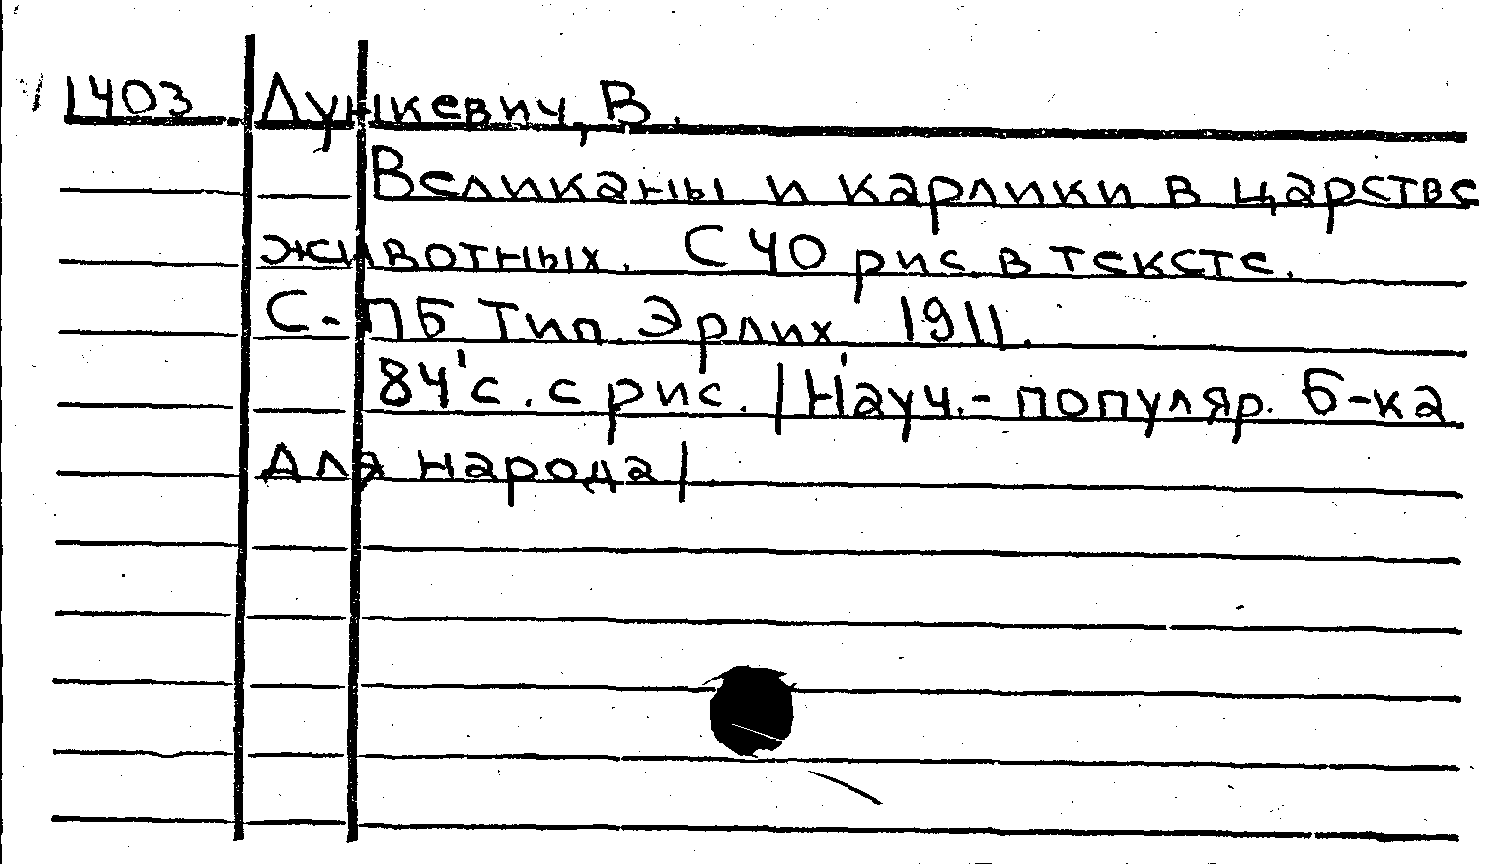 1403 Лункевич, В.
Великаны и карлики в царстве
животных. С 40 рис. в тексте.
С.-ПБ Тип. Эрлих 1911.
84 с. с рис. /Науч.- популяр. б-ка
для народа/